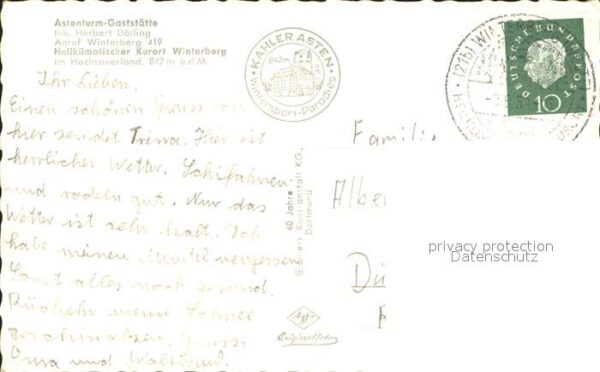 Astenturm-Gaststätte
Inh. Herbert Dölling
Anruf Winterberg 419
Heilklimatischer Kurort Winterberg
im Hochsauerland, 842 m ü.d.M.
KAHLER ASTEN
842m
Wintersport-Paradies
(21b) WINTERBERG
DEUTSCHE BUNDESPOST
10
Ihr Lieben,
Einen schönen Gruss von
hier sendet Trina. Hier ist
herrliches Wetter. Schifahren
und rodeln gut. Nur das
Wetter ist sehr kalt. Ich
habe meinen Mantel vergessen
Sonst alles noch gesund.
Schnee
Gruss
Oma und
Famili
Alber
Dü
60 Jahre
Kunstanstalt KG,
Dortmund
Agfa
Originalfoto
privacy protection
Datenschutz